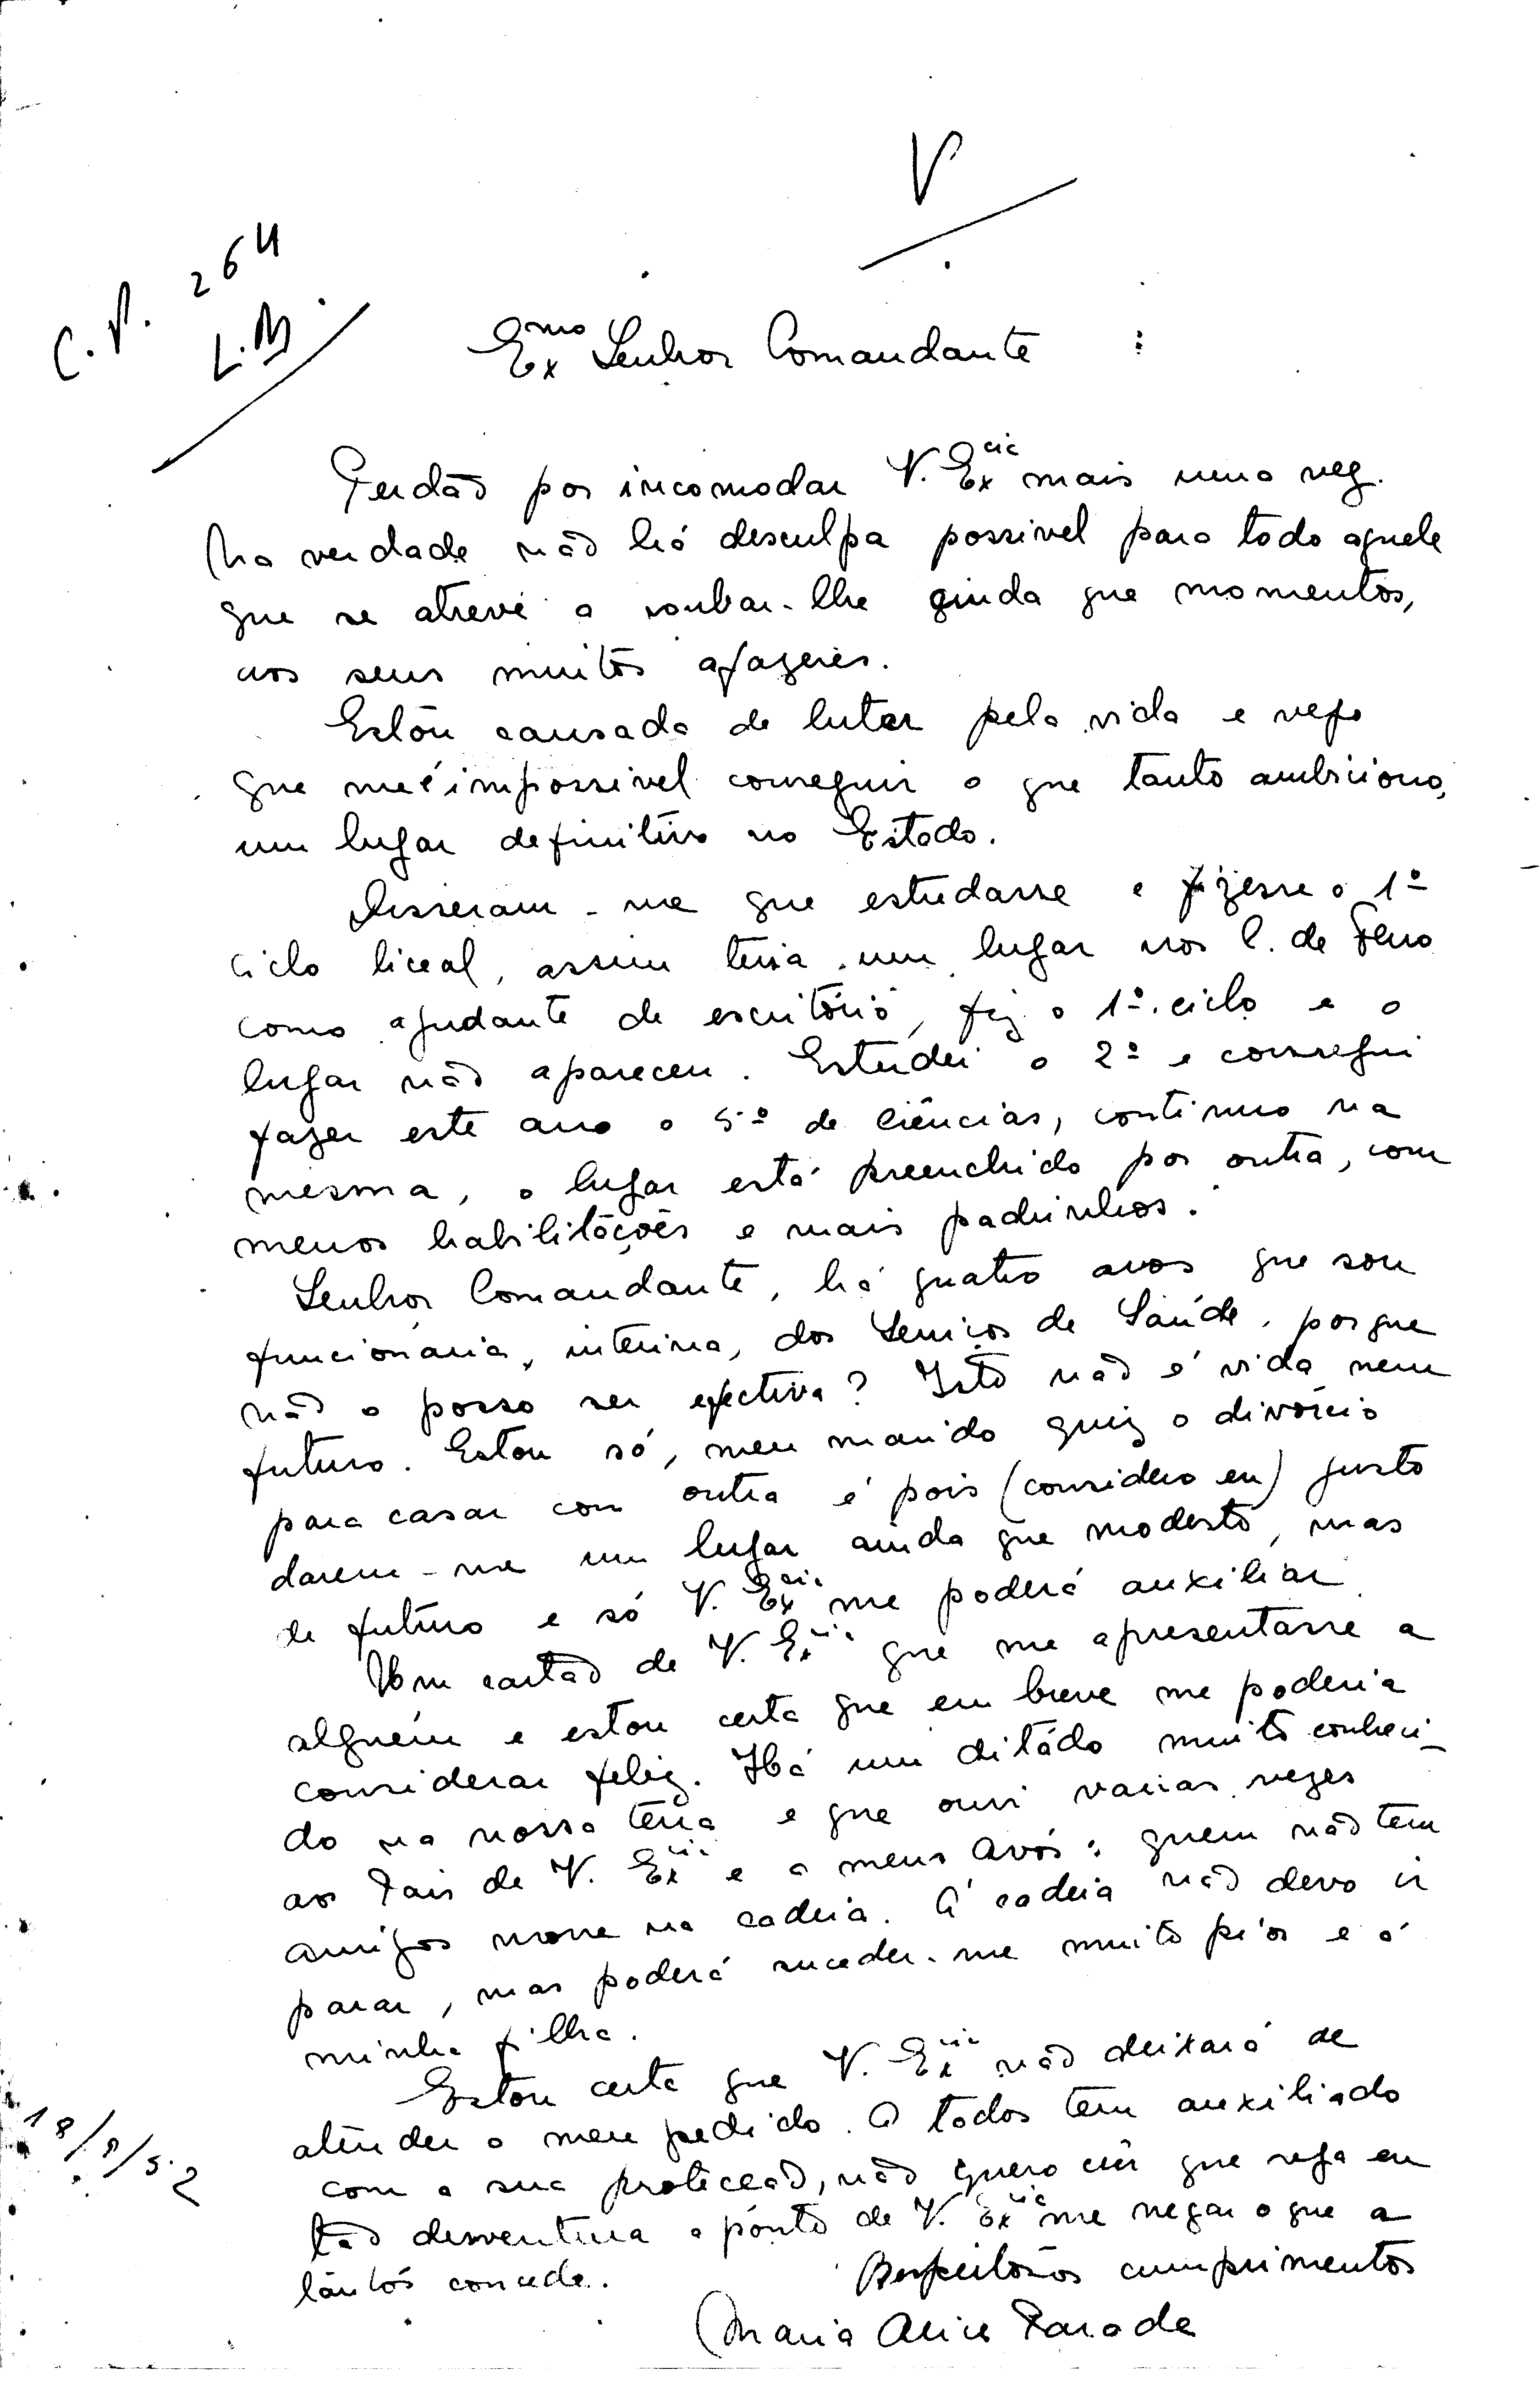 V
C.P. 264
L.M.
Exmo Senhor Comandante :
Perdão por incomodar V. Excia mais uma vez.
Na verdade não há desculpa possivel para todo aquele
que se atreve a roubar-lhe ainda que momentos,
aos seus muitos afazeres.
Estou cansada de lutar pela vida e vejo
que me é impossivel conseguir o que tanto ambiciono,
um lugar definitivo no Estado.
Disseram-me que estudasse e fizesse o 1º
ciclo liceal, assim teria um lugar nos C. de Ferro
como ajudante de escritório, fiz o 1º. ciclo e o
lugar não apareceu. Estudei o 2º e consegui
fazer este ano o 5º de Ciências, continuo na
mesma, o lugar está preenchido por outra, com
menos habilitações e mais padrinhos.
Senhor Comandante, há quatro anos que sou
funcionária, interina, dos Serviços de Saúde, porque
não o posso ser efectiva? Isto não é vida nem
futuro. Estou só, meu marido quiz o divórcio
para casar com outra é pois (considero eu) justo
darem-me um lugar ainda que modesto, mas
de futuro e só V. Excia me poderá auxiliar.
Um cartão de V. Excia que me apresentasse a
alguém e estou certa que em breve me poderia
considerar feliz. Há um ditádo muito conheci-
do na nossa terra e que ouvi varias vezes
aos Pais de V. Excia e a meus Avós: quem não tem
amigos morre na cadeia. Á cadeia não devo ir
parar, mas poderá suceder-me muito piór e á
minha filha.
Estou certa que V. Excia não deixará de
atender o meu pedido. A todos tem auxiliado
com a sua protecção, não quero crêr que seja eu
tão desventura a ponto de V. Excia me negar o que a
tantos concede.
Respeitosos cumprimentos
Maria Alice Parada
18/9/52